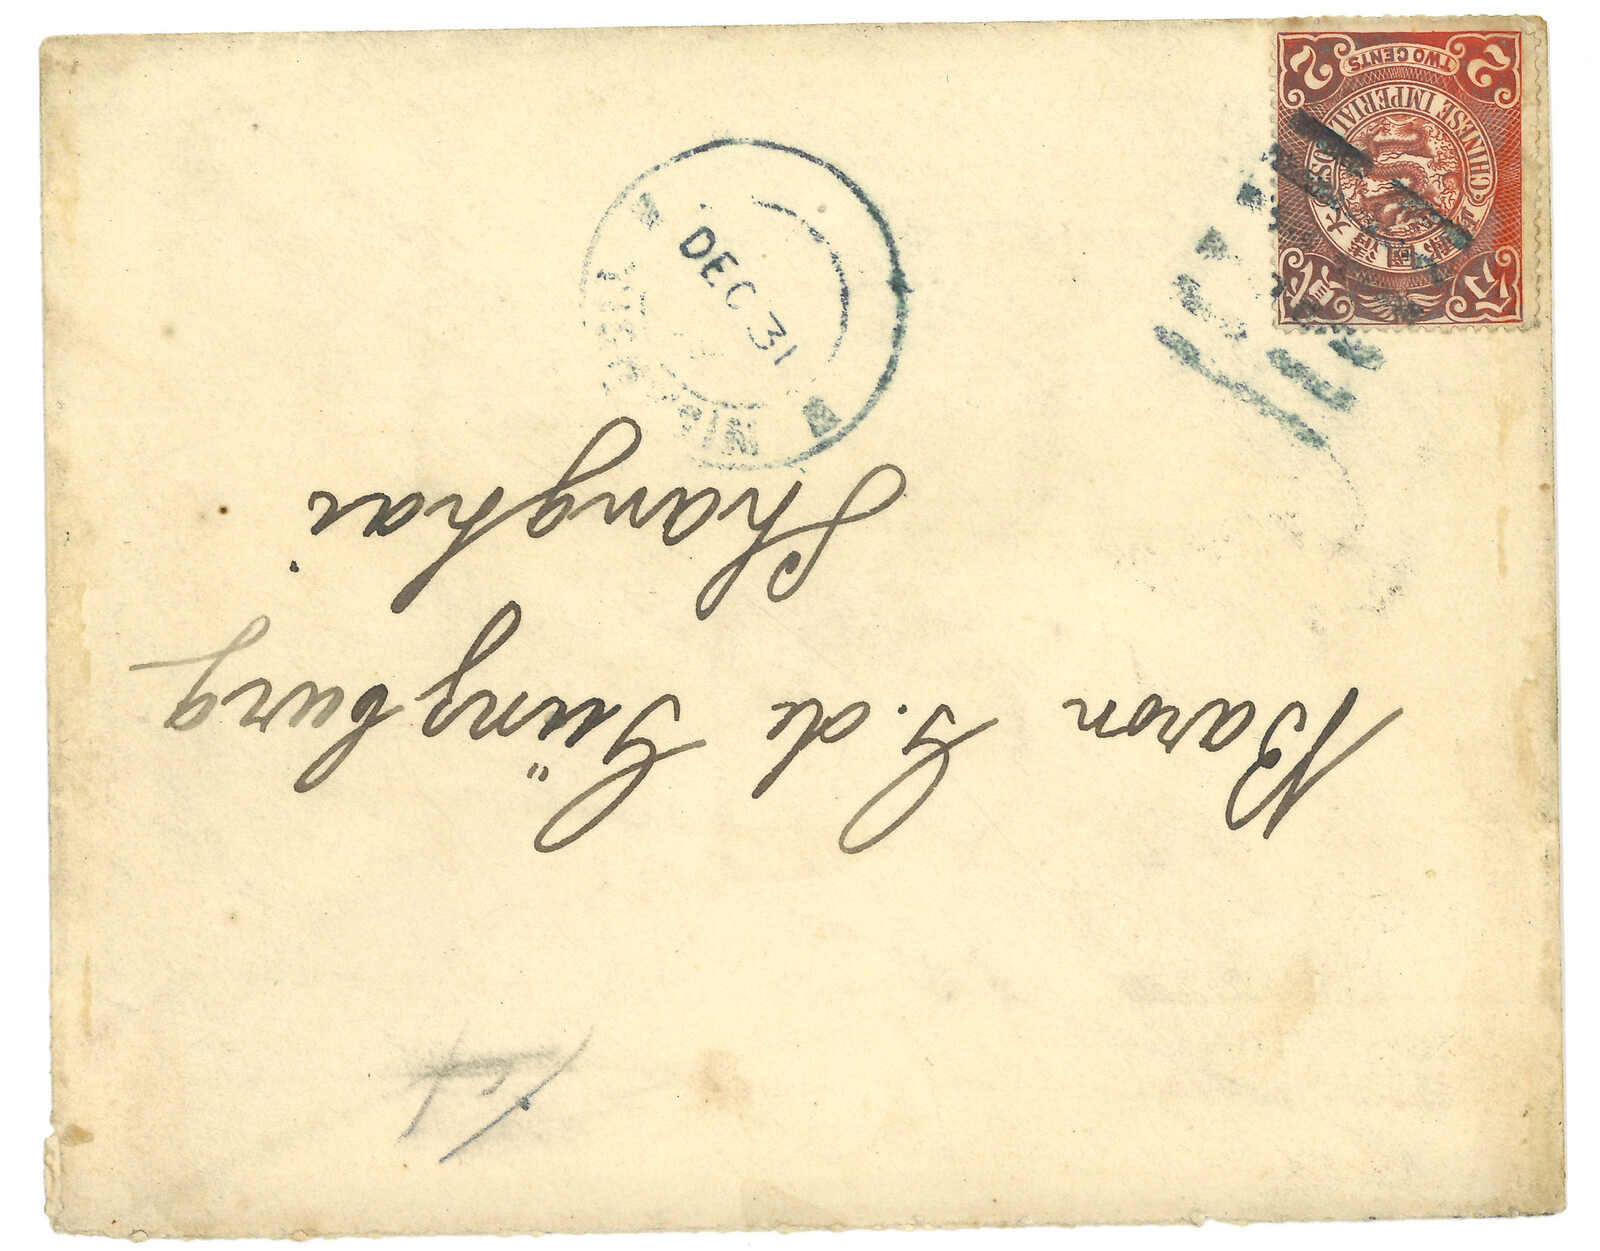 Baron G. de Günzburg
Shanghai
DEC 31
大清
CHINESE IMPERIAL POST
2 TWO CENTS 2